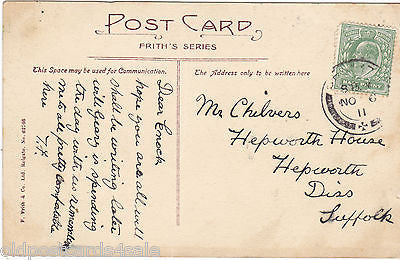 POST CARD
FRITH'S SERIES
This Space may be used for Communication.
The Address only to be written here
Dear Enoch
hope you are all well
shall be writing later
will Georg is spending
the day with us
mets all pretty comfortable
here
F. Frith & Co. Ltd., Reigate. No.
Mr Chilvers
Hepworth House
Hepworth
Diss
Suffolk
NO
11
oldpostcards4sale